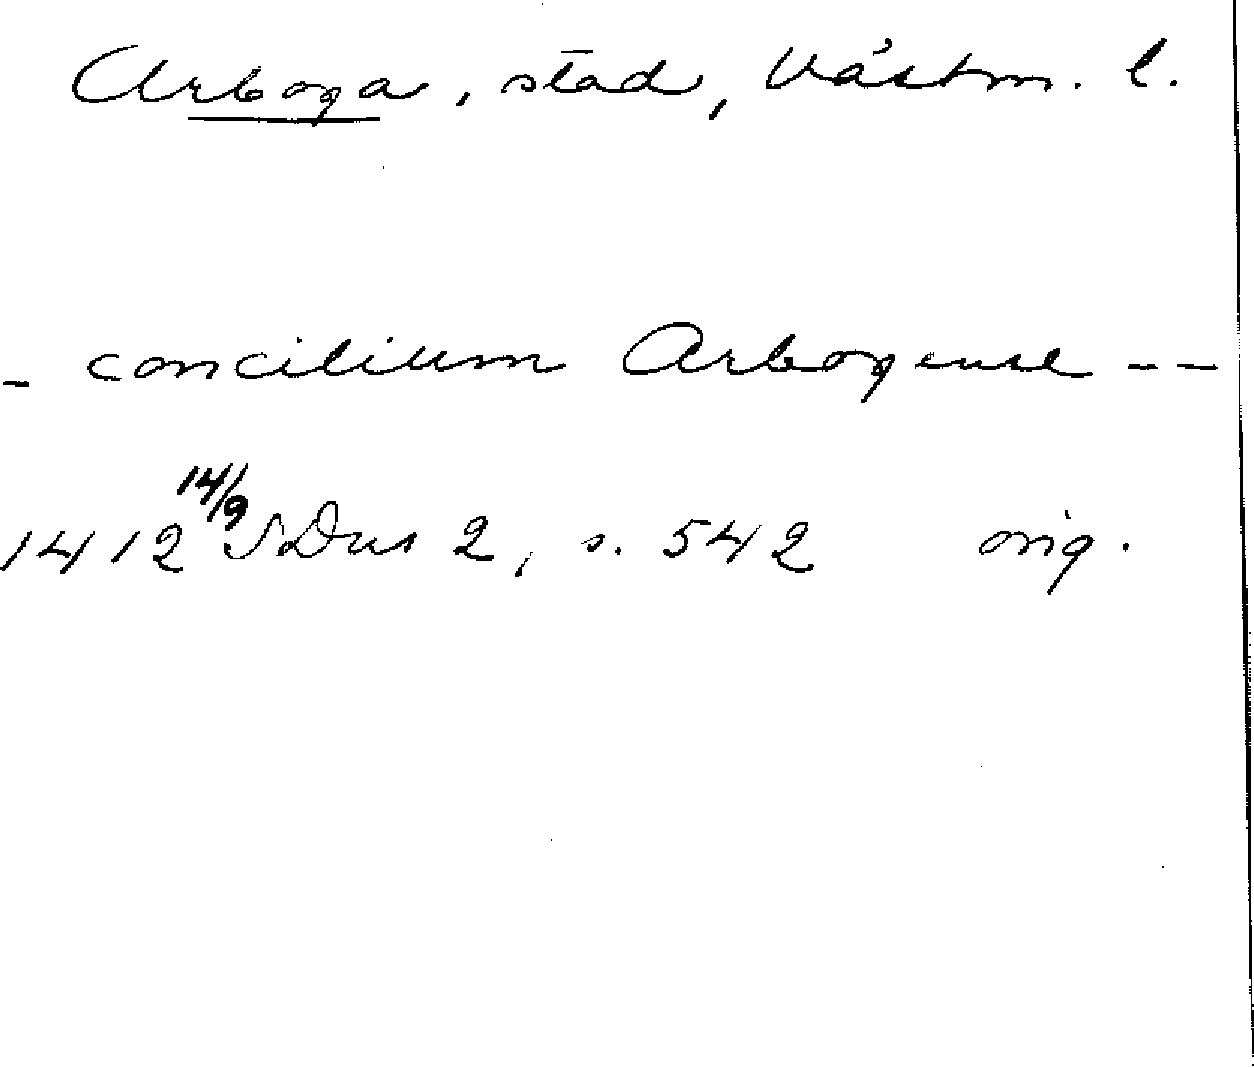 Arboga, stad, Västm. l.
- concilium Arbogense --
1412 14/9 SDns 2, s. 542 orig.